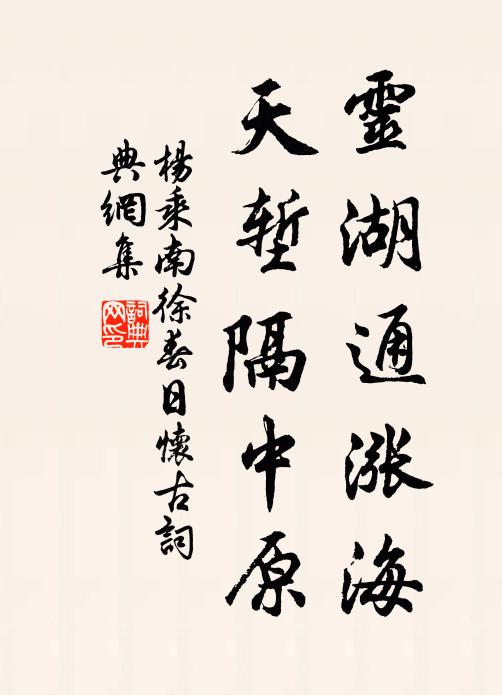 靈湖通漲海
天塹隔中原
楊乘南徐春日懷古詞
典網集
詞典網印